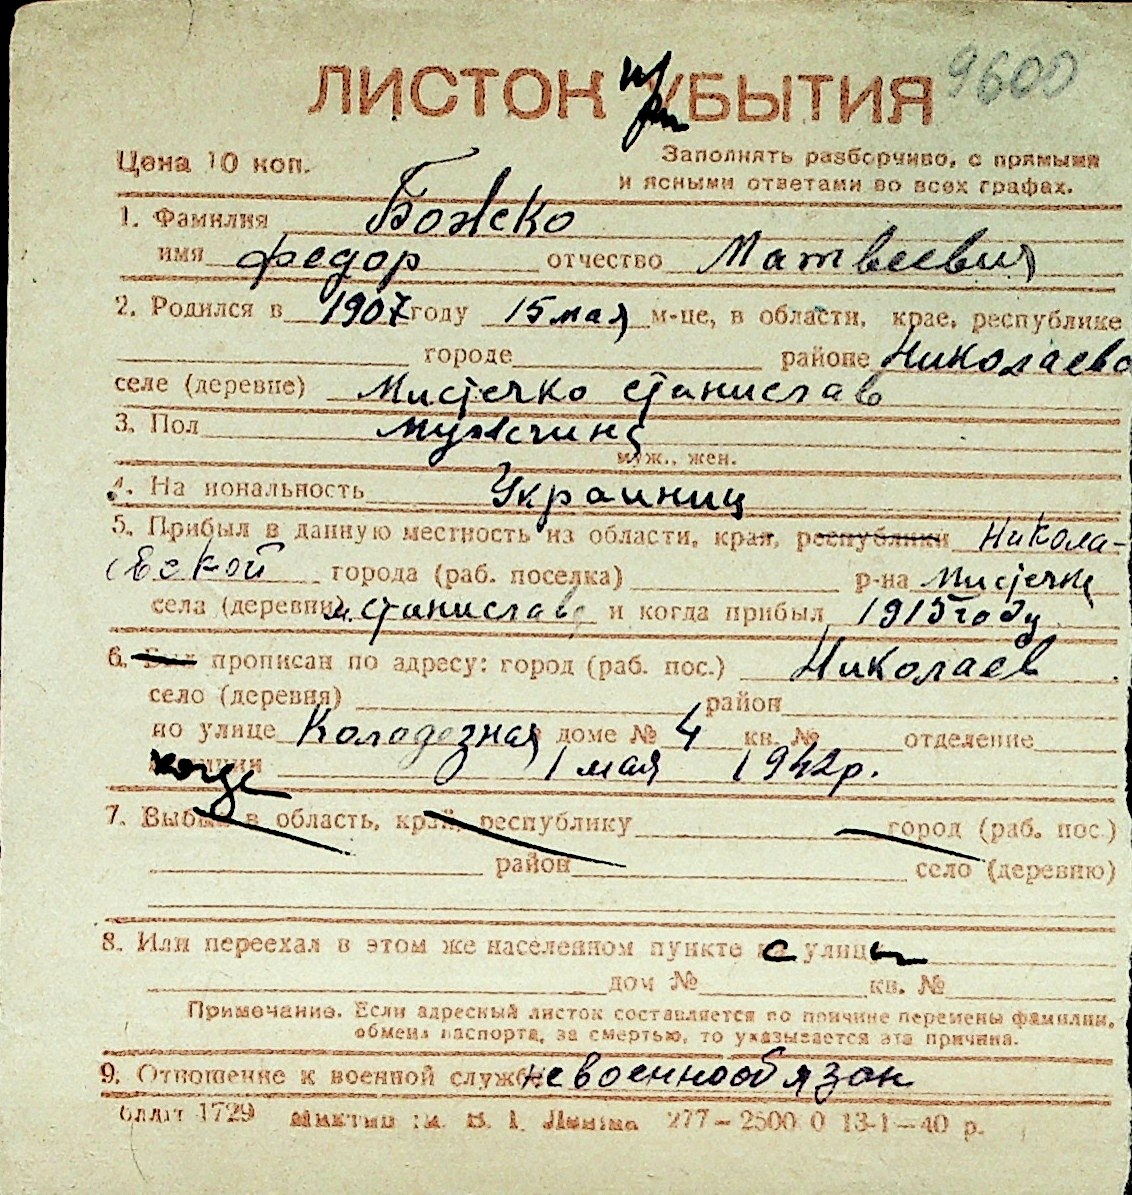 ЛИСТОК при УБЫТИЯ 9600
Цена 10 коп. Заполнять разборчиво, с прямыми
и ясными ответами во всех графах.
1. Фамилия Божко
имя Федор отчество Матвеевич
2. Родился в 1907 году 15 мая м-це, в области, крае, республике
городе районе Николаево
селе (деревне) Мистечко станислав
3. Пол мужчина
муж., жен.
4. На иональность Украиниц
5. Прибыл в данную местность из области, края, республики Никола-
евской города (раб. поселка) р-на мистечк
села (деревни) м. станислав и когда прибыл 1915 году
6. Был прописан по адресу: город (раб. пос.) Николаев
село (деревня) район
по улице Колодезная доме № 4 кв. № отделение
когда 1 мая 1942 р.
7. Выбыл в область, край, республику город (раб. пос.)
район село (деревню)
8. Или переехал в этом же населенном пункте с улицы
дом № кв. №
Примечание. Если адресный листок составляется по причине перемены фамилии,
обмена паспорта, за смертью, то указывается эта причина.
9. Отношение к военной службе не военнообязан
1729 277 – 2500 0 13-1–40 р.